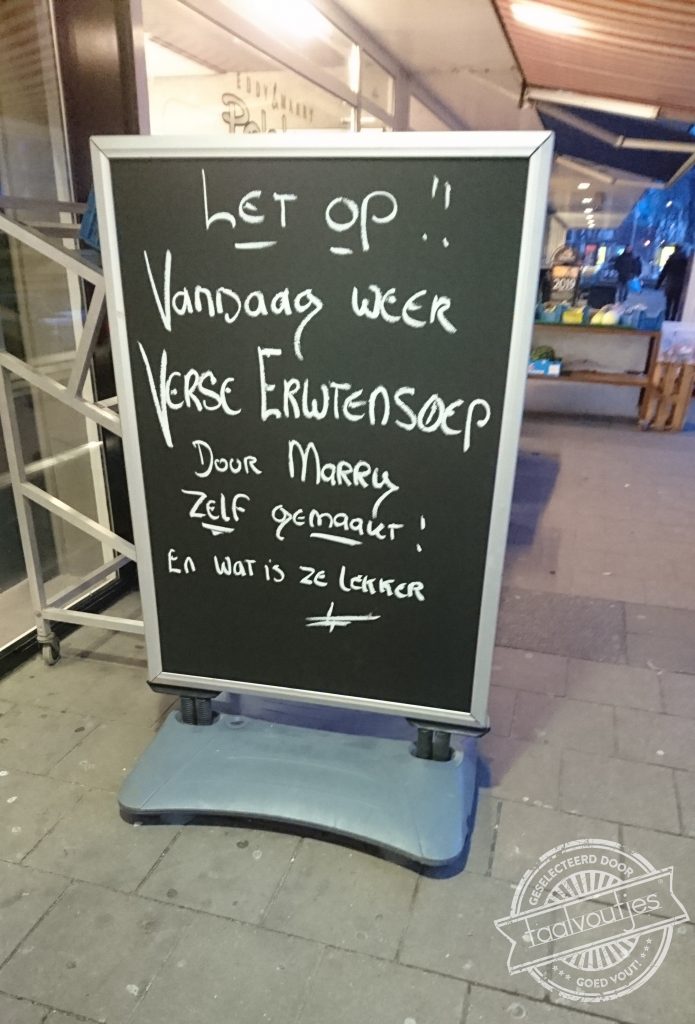 EDDY & MARRY
LET OP !!
VANDAAG WEER
VERSE ERWTENSOEP
DOOR MARRY
ZELF gemaakt!
En wat is ze LEKKER
2019
GESELECTEERD DOOR
taalvoutjes
GOED VOUT!